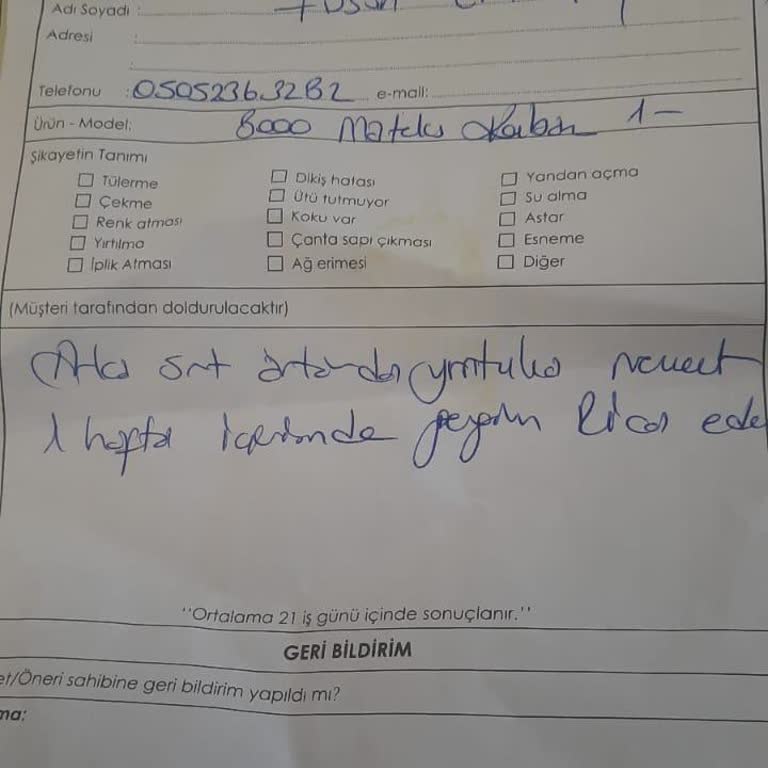 Adı Soyadı :
Adresi :
Telefonu : 05052363282 e-mail:
Ürün - Model: 8000 Kaban 1-
Şikayetin Tanımı
☐ Tülerme ☐ Dikiş hatası ☐ Yandan açma
☐ Çekme ☐ Ütü tutmuyor ☐ Su alma
☐ Renk atması ☐ Koku var ☐ Astar
☐ Yırtılma ☐ Çanta sapı çıkması ☐ Esneme
☐ İplik Atması ☐ Ağ erimesi ☐ Diğer
(Müşteri tarafından doldurulacaktır)
Arka sırt yırtılma mevcut
1 hafta içerisinde rica ede
"Ortalama 21 iş günü içinde sonuçlanır."
GERİ BİLDİRİM
et/Öneri sahibine geri bildirim yapıldı mı?
ma: